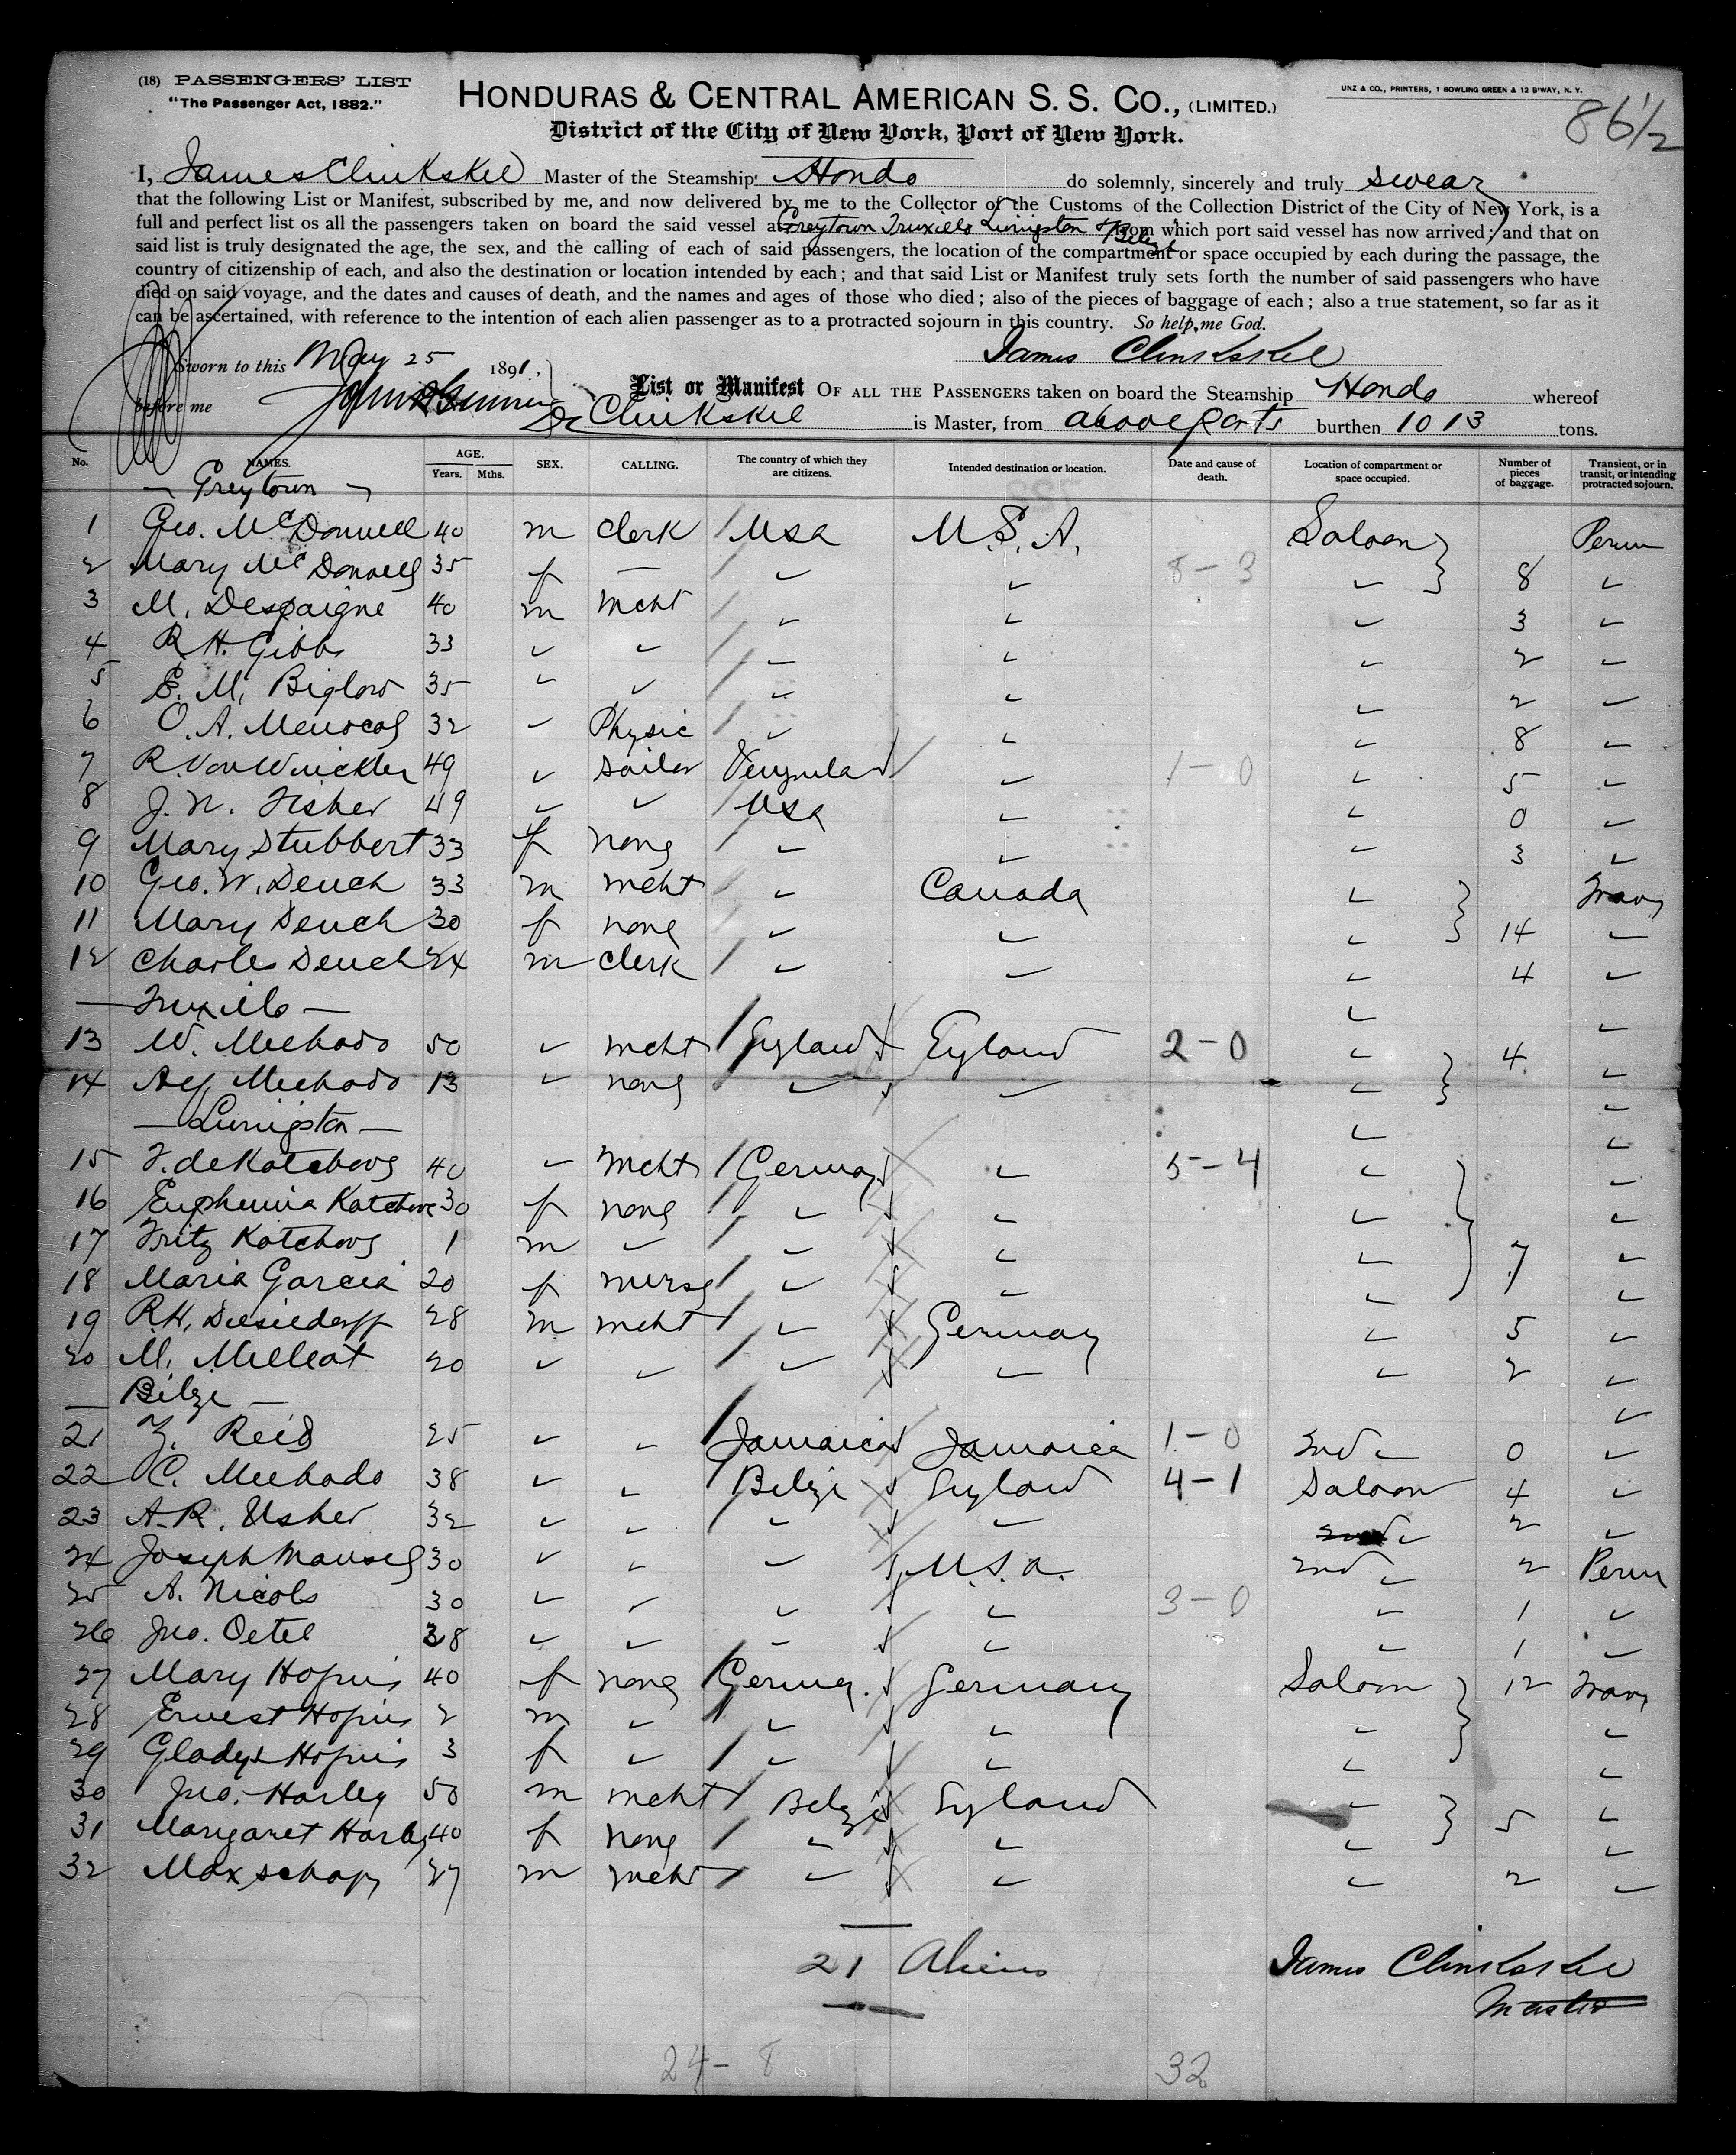 (18) PASSENGERS' LIST
"The Passenger Act, 1882."
HONDURAS & CENTRAL AMERICAN S. S. CO., (LIMITED.)
UNZ & CO., PRINTERS, 1 BOWLING GREEN & 12 B'WAY, N. Y.
86 1/2
District of the City of New York, Port of New York.
I, James Clinkskel Master of the Steamship Hondo do solemnly, sincerely and truly swear
that the following List or Manifest, subscribed by me, and now delivered by me to the Collector of the Customs of the Collection District of the City of New York, is a
full and perfect list os all the passengers taken on board the said vessel at Greytown Truxillo Livingston & Belize from which port said vessel has now arrived; and that on
said list is truly designated the age, the sex, and the calling of each of said passengers, the location of the compartment or space occupied by each during the passage, the
country of citizenship of each, and also the destination or location intended by each; and that said List or Manifest truly sets forth the number of said passengers who have
died on said voyage, and the dates and causes of death, and the names and ages of those who died; also of the pieces of baggage of each; also a true statement, so far as it
can be ascertained, with reference to the intention of each alien passenger as to a protracted sojourn in this country. So help me God.
James Clinkskel
Sworn to this May 25 1891,
before me
List or Manifest OF ALL THE PASSENGERS taken on board the Steamship Hondo whereof
Clinkskel is Master, from above ports burthen 1013 tons.
No. NAMES. AGE. Years. Mths. SEX. CALLING. The country of which they are citizens. Intended destination or location. Date and cause of death. Location of compartment or space occupied. Number of pieces of baggage. Transient, or in transit, or intending protracted sojourn.
— Greytown —
1 Geo. McDonnell 40 m Clerk / USA U.S.A. Saloon } Perm
2 Mary McDonnell 35 f — / ✓ ✓ 8-3 ✓ } 8 ✓
3 M. Despaigne 40 m mcht / ✓ ✓ ✓ 3 ✓
4 R H. Gibbs 33 ✓ ✓ / ✓ ✓ ✓ 2 ✓
5 E. M. Biglow 35 ✓ ✓ / ✓ ✓ ✓ 2 ✓
6 O. A. Menocal 32 ✓ Physic / ✓ ✓ ✓ 8 ✓
7 R. Von Winckler 49 ✓ sailor ✓ 1-0 ✓ 5 ✓
8 J. N. Fisher 49 ✓ ✓ / USA ✓ ✓ 0 ✓
9 Mary Stubbert 33 f none / ✓ ✓ ✓ 3 ✓
10 Geo. W. Deuch 33 m mcht / ✓ Canada ✓ } Trans
11 Mary Deuch 30 f none / ✓ ✓ ✓ } 14 ✓
12 Charles Deuch 24 m Clerk / ✓ ✓ ✓ 4 ✓
— Truxillo — ✓ ✓
13 W. Mechado 50 ✓ mcht / England England 2-0 ✓ } 4 ✓
14 Mechado 13 ✓ none ✓ ✓ ✓ } ✓
— Livingston — ✓ ✓
15 40 ✓ mcht / Germany ✓ 5-4 ✓ } ✓
16 Euphemia 30 f none / ✓ ✓ ✓ ✓
17 Fritz 1 m ✓ / ✓ ✓ ✓ 7 ✓
18 Maria Garcia 20 f nurse / ✓ ✓ ✓ } ✓
19 R.H. Diesieldorff 28 m mcht / ✓ Germany ✓ 5 ✓
20 M. 20 ✓ ✓ / ✓ ✓ ✓ 2 ✓
— Belize — ✓
21 Reid 25 ✓ ✓ / Jamaica Jamaica 1-0 2nd ✓ 0 ✓
22 C. Mechado 38 ✓ ✓ / Belize England 4-1 Saloon 4 ✓
23 A. R. Usher 32 ✓ ✓ / ✓ ✓ ✓ 2 ✓
24 Joseph 30 ✓ ✓ ✓ U.S.a. 2nd ✓ 2 Perm
25 A. Nicols 30 ✓ ✓ ✓ ✓ 3-0 ✓ 1 ✓
26 Jno. Oetel 38 ✓ ✓ ✓ ✓ ✓ 1 ✓
27 Mary 40 f none / Germa. Germany Saloon } 12 Trans
28 Ernest 2 m ✓ / ✓ ✓ ✓ ✓
29 Gladys 3 f ✓ / ✓ ✓ ✓ } ✓
30 Jno. Harley 50 m mcht / Belize England ✓ } ✓
31 Margaret Harley 40 f none / ✓ ✓ ✓ } 5 ✓
32 Max 27 m mcht / ✓ ✓ ✓ 2 ✓
21 Aliens
James Clinkskel
Master
24-8
32